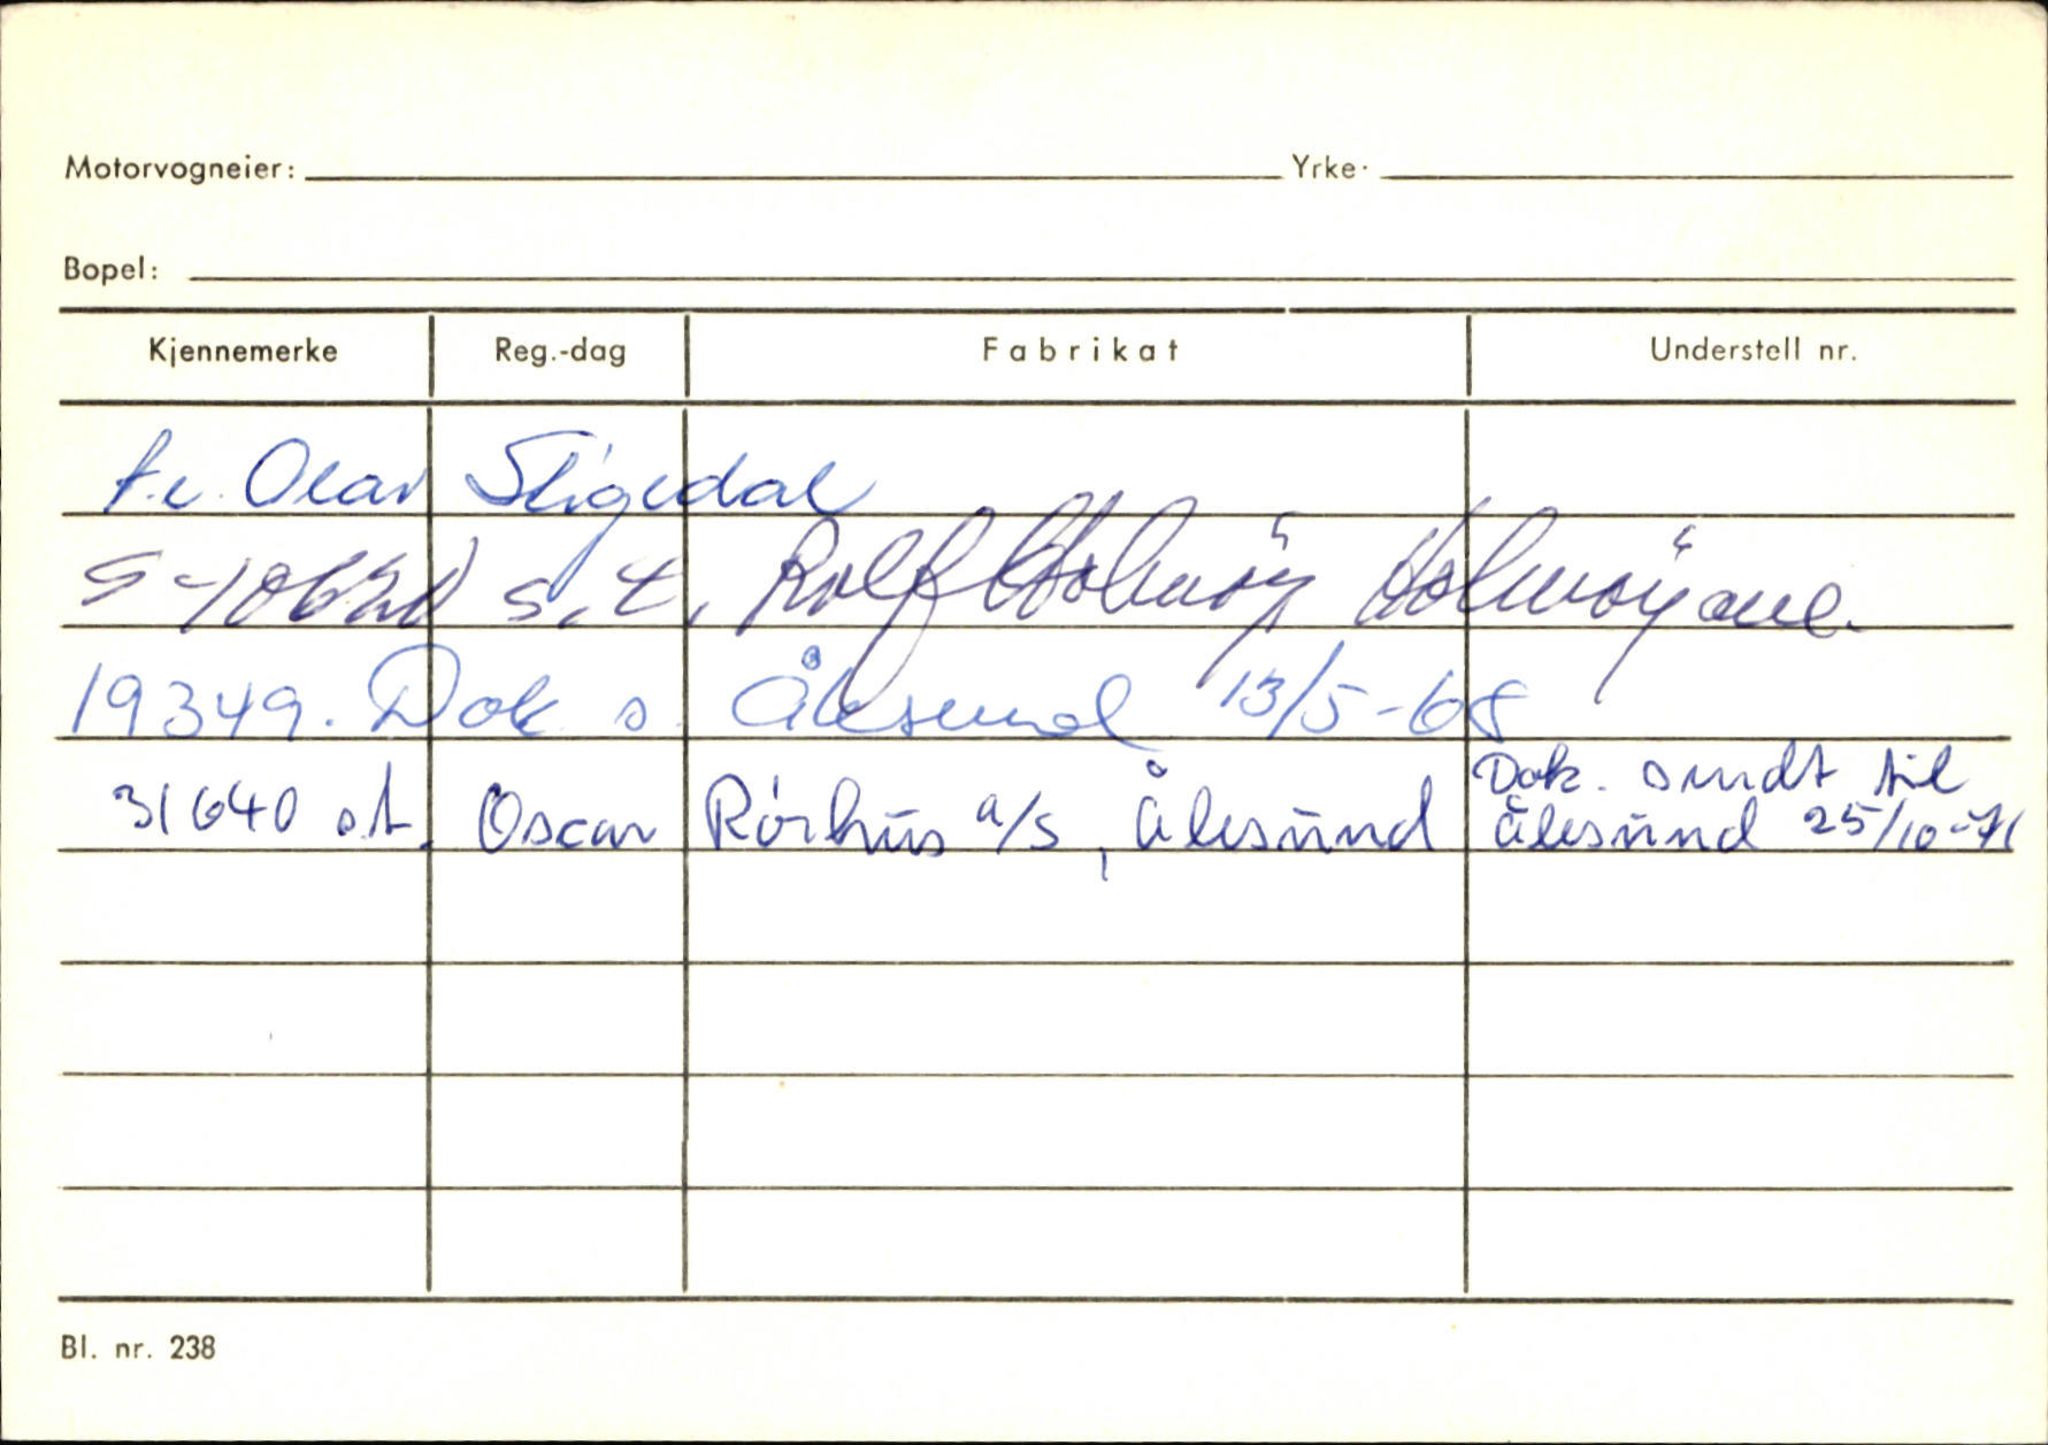 Motorvogneier: Yrke·
Bopel:
Kjennemerke Reg.-dag Fabrikat Understell nr.
f.e. Olav Stigedal
S-10620 s.t. Rolf Holmøy Holmøyane.
19349. Dok s. Ålesund 13/5-68
31640 s.t. Oscar Rörhus a/s, Ålesund Dok. sendt til
Ålesund 25/10-71
Bl. nr. 238